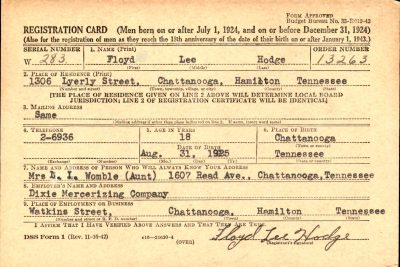 Form Approved
Budget Bureau No. 33-R012-42
REGISTRATION CARD (Men born on or after July 1, 1924, and on or before December 31, 1924)
(Also for the registration of men as they reach the 18th anniversary of the date of their birth on or after January 1, 1943.)
SERIAL NUMBER 1. NAME (Print) ORDER NUMBER
W 283 Floyd Lee Hodge 13263
(First) (Middle) (Last)
2. PLACE OF RESIDENCE (Print)
1306 Lyerly Street, Chattanooga, Hamilton Tennessee
(Number and street) (Town, township, village, or city) (County) (State)
[THE PLACE OF RESIDENCE GIVEN ON LINE 2 ABOVE WILL DETERMINE LOCAL BOARD
JURISDICTION; LINE 2 OF REGISTRATION CERTIFICATE WILL BE IDENTICAL]
3. MAILING ADDRESS
Same
[Mailing address if other than place indicated on line 2. If same, insert word same]
4. TELEPHONE 5. AGE IN YEARS 6. PLACE OF BIRTH
2-6936 18 Chattanooga
DATE OF BIRTH (Town or county)
Aug. 31, 1925 Tennessee
(Exchange) (Number) (Mo.) (Day) (Yr.) (State or country)
7. NAME AND ADDRESS OF PERSON WHO WILL ALWAYS KNOW YOUR ADDRESS
Womble (Aunt) 1607 Read Ave., Chattanooga, Tennessee
8. EMPLOYER'S NAME AND ADDRESS
Dixie Mercerizing Company
9. PLACE OF EMPLOYMENT OR BUSINESS
Watkins Street, Chattanooga, Hamilton Tennessee
(Number and street or R. F. D. number) (Town) (County) (State)
I AFFIRM THAT I HAVE VERIFIED ABOVE ANSWERS AND THAT THEY ARE TRUE.
DSS Form 1 (Rev. 11-16-42) (OVER) Floyd Lee Hodge
(Registrant's signature)